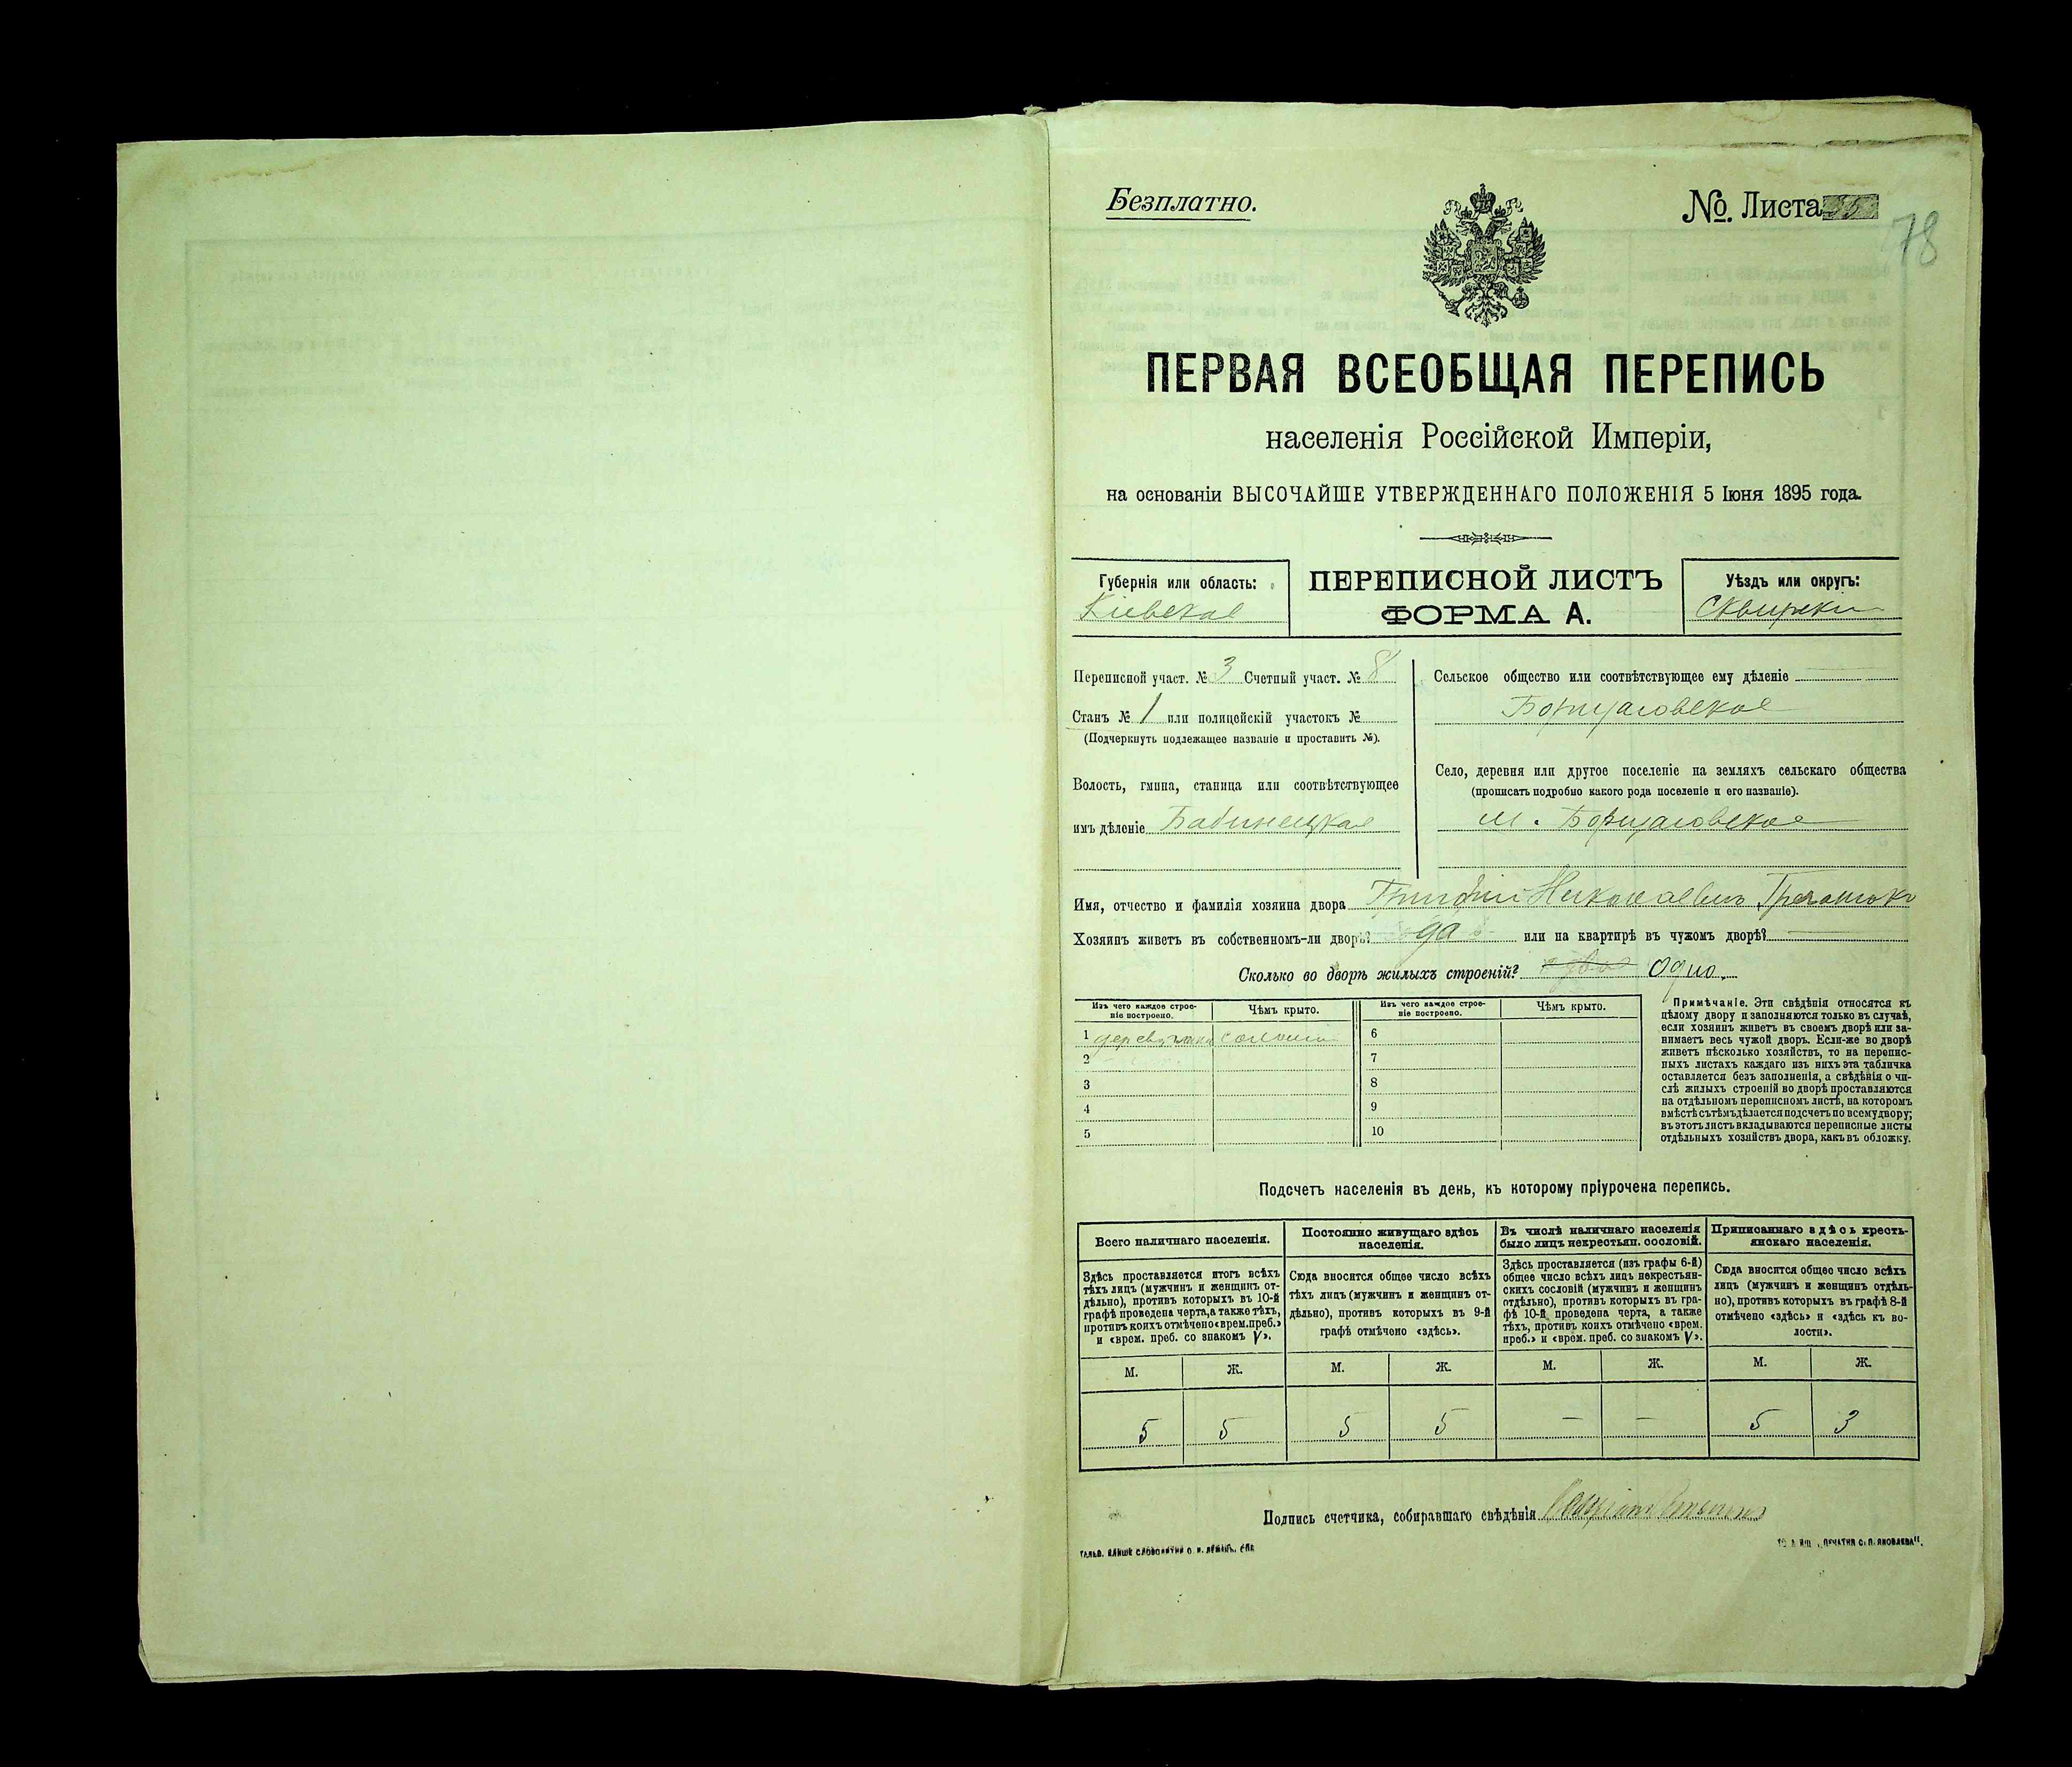 Безплатно.
№. Листа
78
ПЕРВАЯ ВСЕОБЩАЯ ПЕРЕПИСЬ
населенія Россійской Имперіи,
на основаніи ВЫСОЧАЙШЕ УТВЕРЖДЕННАГО ПОЛОЖЕНІЯ 5 Іюня 1895 года.
Губернія или область:
Кіевская
ПЕРЕПИСНОЙ ЛИСТЪ
ФОРМА А.
Уѣздъ или округъ:
Сквирскій
Переписной участ. № 3 Счетный участ. № 8
Станъ № 1 или полицейскій участокъ №
(Подчеркнуть подлежащее названіе и проставить №).
Волость, гмина, станица или соотвѣтствующее
имъ дѣленіе Бабинецкая
Сельское общество или соотвѣтствующее ему дѣленіе
Борщаговское
Село, деревня или другое поселеніе на земляхъ сельскаго общества
(прописать подробно какого рода поселеніе и его названіе).
м. Борщаговское
Имя, отчество и фамилія хозяина двора
Хозяинъ живетъ въ собственномъ-ли дворѣ? да или на квартирѣ въ чужомъ дворѣ?
Сколько во дворѣ жилыхъ строеній? одно.
Изъ чего каждое строе-
ніе построено.
Чѣмъ крыто.
Изъ чего каждое строе-
ніе построено.
Чѣмъ крыто.
1
6
2
7
3
8
4
9
5
10
Примѣчаніе. Эти свѣдѣнія относятся къ
цѣлому двору и заполняются только въ случаѣ,
если хозяинъ живетъ въ своемъ дворѣ или за-
нимаетъ весь чужой дворъ. Если-же во дворѣ
живетъ нѣсколько хозяйствъ, то на перепис-
ныхъ листахъ каждаго изъ нихъ эта табличка
оставляется безъ заполненія, а свѣдѣнія о чи-
слѣ жилыхъ строеній во дворѣ проставляются
на отдѣльномъ переписномъ листѣ, на которомъ
вмѣстѣ съ тѣмъ дѣлается подсчетъ по всему двору;
въ этотъ листъ вкладываются переписные листы
отдѣльныхъ хозяйствъ двора, какъ въ обложку.
Подсчетъ населенія въ день, къ которому пріурочена перепись.
Всего наличнаго населенія.
Постоянно живущаго здѣсь
населенія.
Въ числѣ наличнаго населенія
было лицъ некрестьян. сословій.
Приписаннаго здѣсь кресть-
янскаго населенія.
Здѣсь проставляется итогъ всѣхъ
тѣхъ лицъ (мужчинъ и женщинъ от-
дѣльно), противъ которыхъ въ 10-й
графѣ проведена черта, а также тѣхъ,
противъ коихъ отмѣчено «врем. преб.»
и «врем. преб. со знакомъ V».
Сюда вносится общее число всѣхъ
тѣхъ лицъ (мужчинъ и женщинъ от-
дѣльно), противъ которыхъ въ 9-й
графѣ отмѣчено «здѣсь».
Здѣсь проставляется (изъ графы 6-й)
общее число всѣхъ лицъ некрестьян-
скихъ сословій (мужчинъ и женщинъ
отдѣльно), противъ которыхъ въ гра-
фѣ 10-й проведена черта, а также
тѣхъ, противъ коихъ отмѣчено «врем.
преб.» и «врем. преб. со знакомъ V».
Сюда вносится общее число всѣхъ
лицъ (мужчинъ и женщинъ отдѣль-
но), противъ которыхъ въ графѣ 8-й
отмѣчено «здѣсь» и «здѣсь къ во-
лости».
М. Ж. М. Ж. М. Ж. М. Ж.
5 5 5 5 — — 5 3
Подпись счетчика, собиравшаго свѣдѣнія